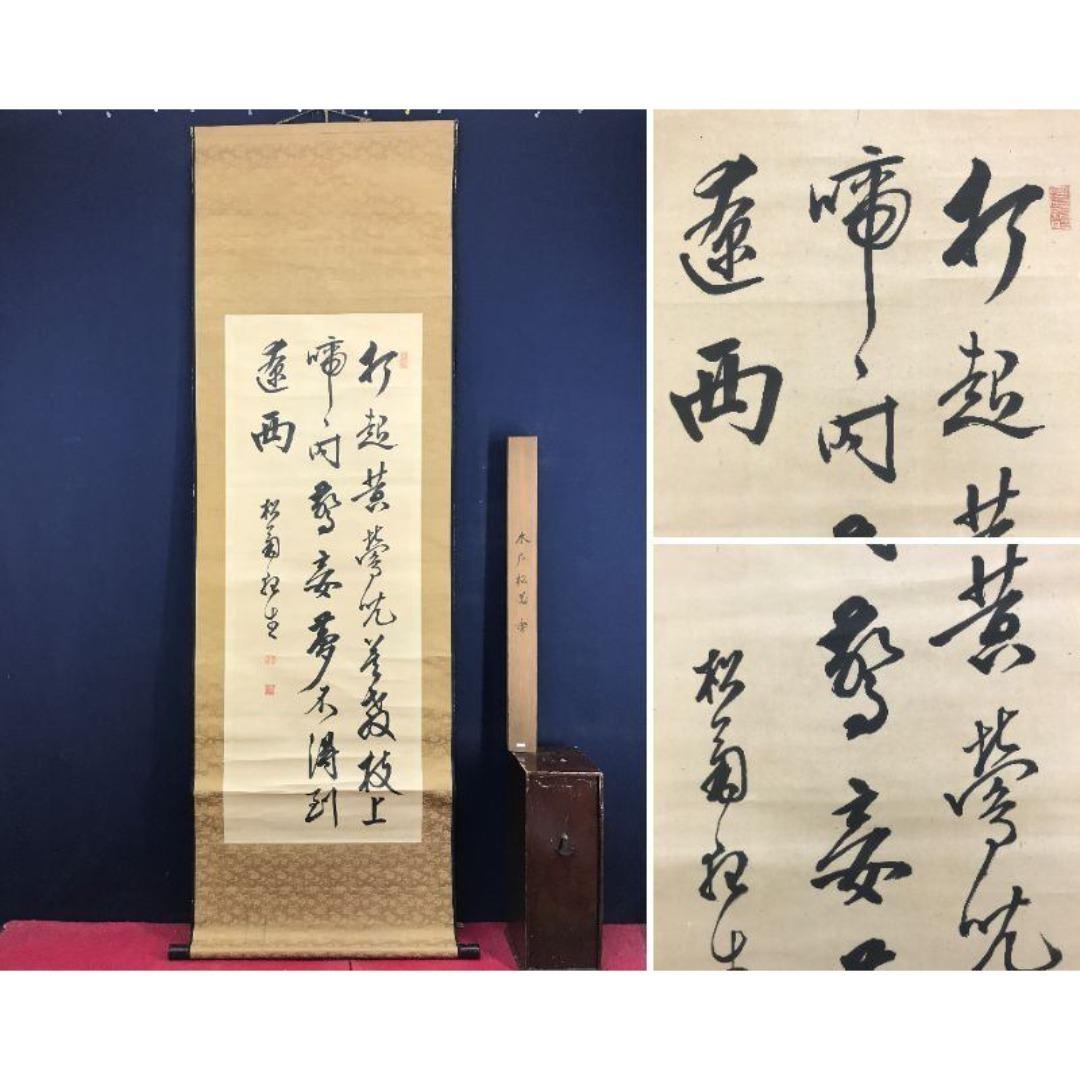 打起黄鶯児莫教枝上
啼〻時驚妾夢不得到
遼西
松菊狂生
木戸松菊書